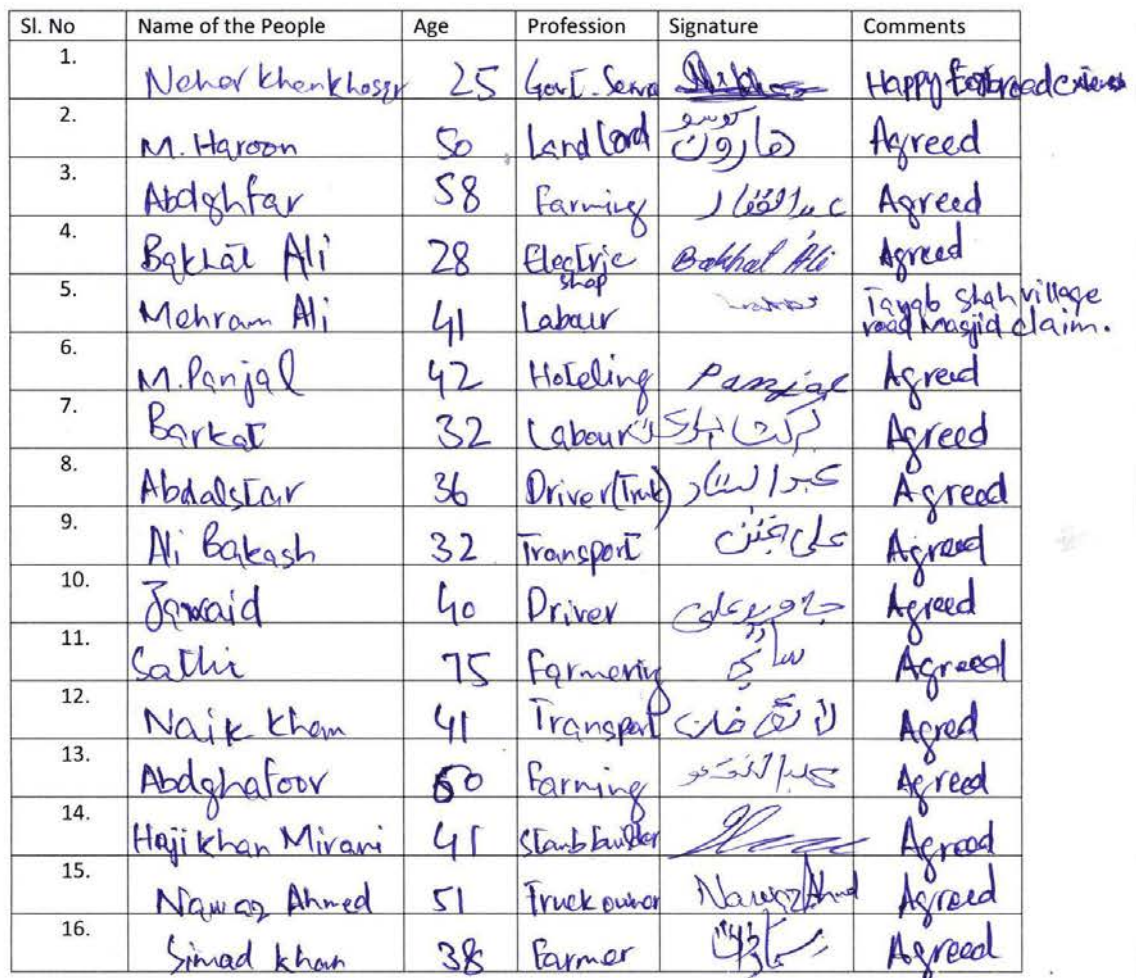 Sl. No Name of the People Age Profession Signature Comments
1. Neher khenkhosser 25 Govt. Serva Happy for road
2. M. Haroon 50 Land lord هارون Agreed
3. Abdghfar 58 Farming عبدالغفار Agreed
4. Bakhat Ali 28 Electric shop Bakhat Ali Agreed
5. Mehram Ali 41 Labour Tayab Shah village
road Masjid claim.
6. M. Panjal 42 Hoteling Panjal Agreed
7. Barkat 32 Labour برکت Agreed
8. Abdalstar 36 Driver (Truk) عبدالستار Agreed
9. Ali Bakash 32 Transport علی Agreed
10. Jawaid 40 Driver جاوید علی Agreed
11. Sathi 75 Farmering Agreed
12. Naik Khan 41 Transport خان Agred
13. Abdghafoor 60 Farming Agreed
14. Haji khan Mirani 41 Agreed
15. Nawaz Ahmed 51 Truck owner Nawaz Ahmd Agreed
16. Simad khan 38 Farmer Agreed